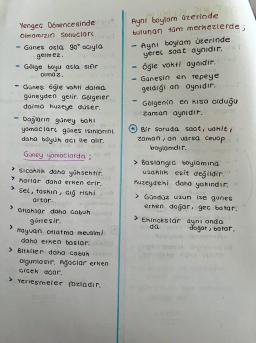 Yengeç Dönencesinde
Olmamızın Sonuçları
- Güneş asla 90° açıyla
gelmez.
- Gölge boyu asla sıfır
olmaz.
- Güneş öğle vakti daima
güneyden gelir. Gölgeler
daima kuzeye düşer.
- Dağların güney baki
yamaçları güneş ışınlarını
daha büyük açı ile alır.
Güney yamaçlarda;
> Sıcaklık daha yüksektir.
> Karlar daha erken erir.
> Sel, taşkın, çığ riski
artar.
> Otlaklar daha çabuk
güresir.
> Hayvan otlatma mevsimi
daha erken başlar.
> Bitkiler daha çabuk
olgunlaşır. Ağaçlar erken
çiçek açar.
> Yerleşmeler fazladır.
Aynı boylam üzerinde
bulunan tüm merkezlerde;
- Aynı boylam üzerinde
yerel saat aynıdır.
- Öğle vakti aynıdır.
- Güneşin en tepeye
geldiği an aynıdır.
- Gölgenin en kısa olduğu
zaman aynıdır.
Bir soruda saat, vakit,
zaman, an varsa cevap
boylamdır.
> Başlangıç boylamına
uzaklık eşit değildir.
Kuzeydeki daha yakındır.
> Gündüz uzun ise güneş
erken doğar, geç batar.
> Ekinokslar aynı anda
da doğar, batar.